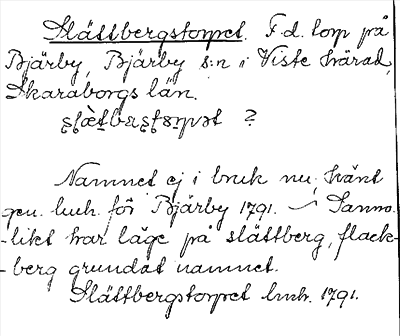 Slättbergstorpet. F.d. torp på
Bjärby, Bjärby s:n i Viste härad,
Skaraborgs län.
?
Namnet ej i bruk nu, hänt
gen. husk. för Bjärby 1791. — Sanno-
-likt har läge på slättberg, flack-
-berg grundat namnet.
Slättbergstorpet husk. 1791.